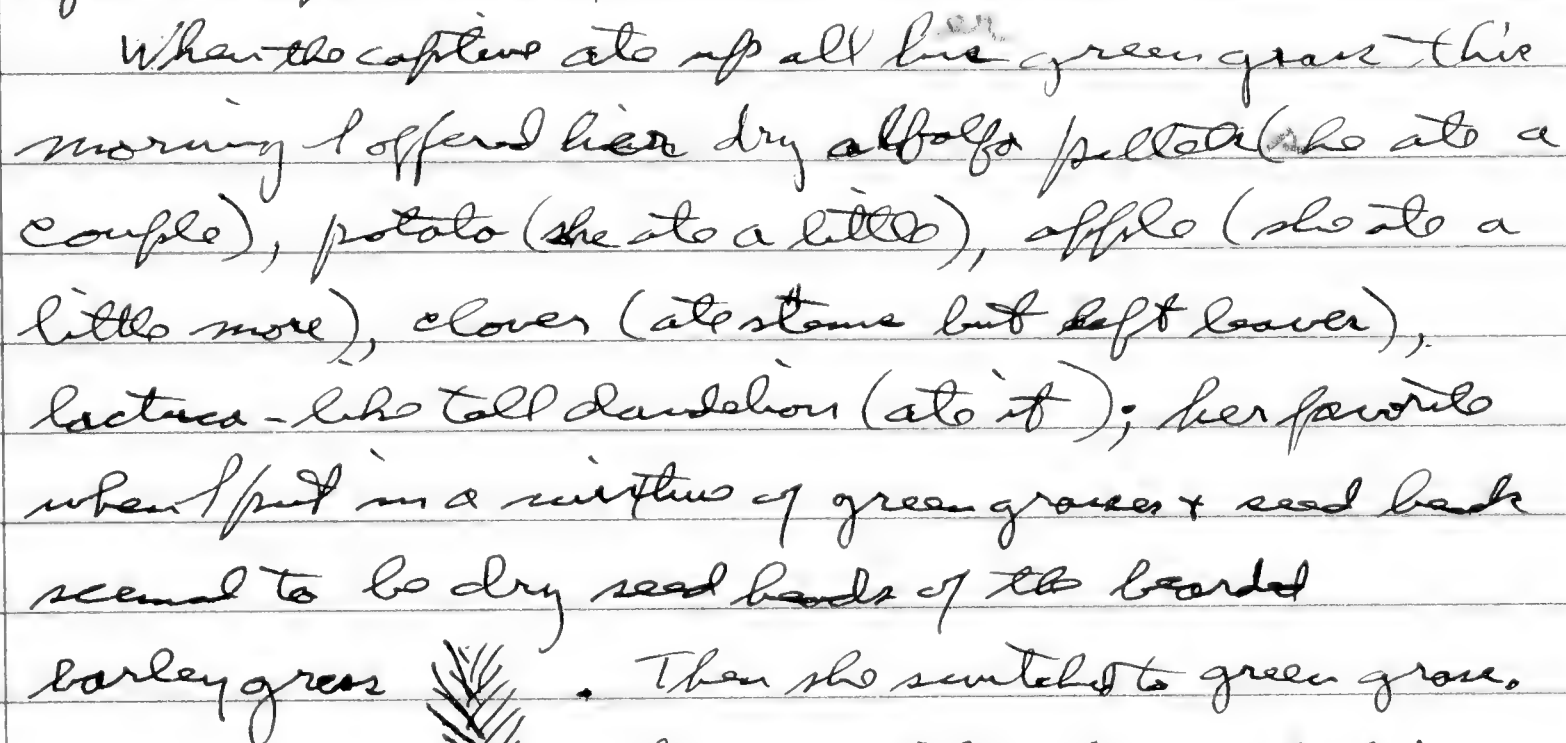 When the captive ate up all her green grass this
morning I offered her dry alfalfa pellets (she ate a
couple), potato (she ate a little), apple (she ate a
little more), clover (ate stems but left leaves),
lactuca-like tall dandelion (ate it); her favorite
when I put in a mixture of green grasses + seed heads
seemed to be dry seed heads of the bearded
barley grass . Then she switched to green grass.